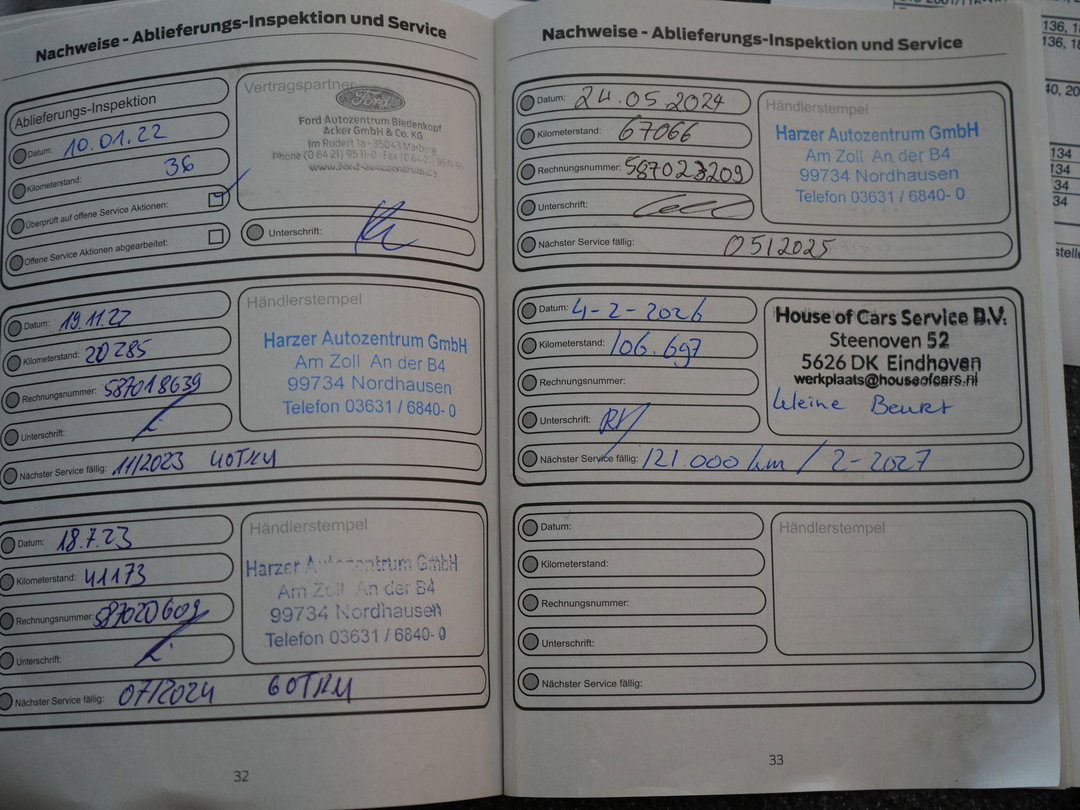 Nachweise - Ablieferungs-Inspektion und Service
Ablieferungs-Inspektion
Datum: 10.01.22
Kilometerstand: 36
Überprüft auf offene Service Aktionen:
Offene Service Aktionen abgearbeitet:
Vertragspartner
Ford
Ford Autozentrum Biedenkopf
Acker GmbH & Co. KG
Im Rudert 1a - 35043 Marburg
Phone (0 64 21) 95 11-0 - Fax
www.ford-autozentrum.de
Unterschrift:
Datum: 19.11.22
Kilometerstand: 20285
Rechnungsnummer: 587018639
Unterschrift:
Nächster Service fällig: 11/2023 40TKM
Händlerstempel
Harzer Autozentrum GmbH
Am Zoll An der B4
99734 Nordhausen
Telefon 03631 / 6840- 0
Datum: 18.7.23
Kilometerstand: 41173
Rechnungsnummer: 587020609
Unterschrift:
Nächster Service fällig: 07/2024 60TKM
Händlerstempel
Harzer Autozentrum GmbH
Am Zoll An der B4
99734 Nordhausen
Telefon 03631 / 6840- 0
32
Nachweise - Ablieferungs-Inspektion und Service
Datum: 24.05.2024
Kilometerstand: 67066
Rechnungsnummer: 587023209
Unterschrift:
Nächster Service fällig: 05/2025
Händlerstempel
Harzer Autozentrum GmbH
Am Zoll An der B4
99734 Nordhausen
Telefon 03631 / 6840- 0
Datum: 4-2-2026
Kilometerstand: 106.697
Rechnungsnummer:
Unterschrift:
Nächster Service fällig: 121.000 km / 2-2027
House of Cars Service B.V.
Steenoven 52
5626 DK Eindhoven
werkplaats@houseofcars.nl
kleine Beurt
Datum:
Kilometerstand:
Rechnungsnummer:
Unterschrift:
Nächster Service fällig:
Händlerstempel
33